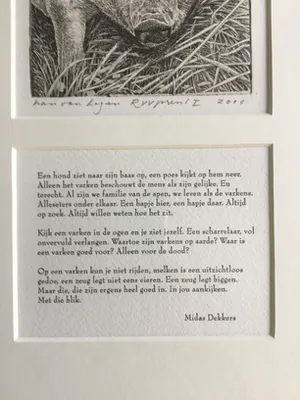 2000
Een hond ziet naar zijn baas op, een poes kijkt op hem neer.
Alleen het varken beschouwt de mens als zijn gelijke. En
terecht. Al zijn we familie van de apen, we leven als de varkens.
Alleseters onder elkaar. Een hapje hier, een hapje daar. Altijd
op zoek. Altijd willen weten hoe het zit.
Kijk een varken in de ogen en je ziet jezelf. Een scharrelaar, vol
onvervuld verlangen. Waartoe zijn varkens op aarde? Waar is
een varken goed voor? Alleen voor de dood?
Op een varken kun je niet rijden, melken is een uitzichtloos
gedoe, een zeug legt niet eens eieren. Een zeug legt biggen.
Maar die, die zijn ergens heel goed in. In jou aankijken.
Met die blik.
Midas Dekkers